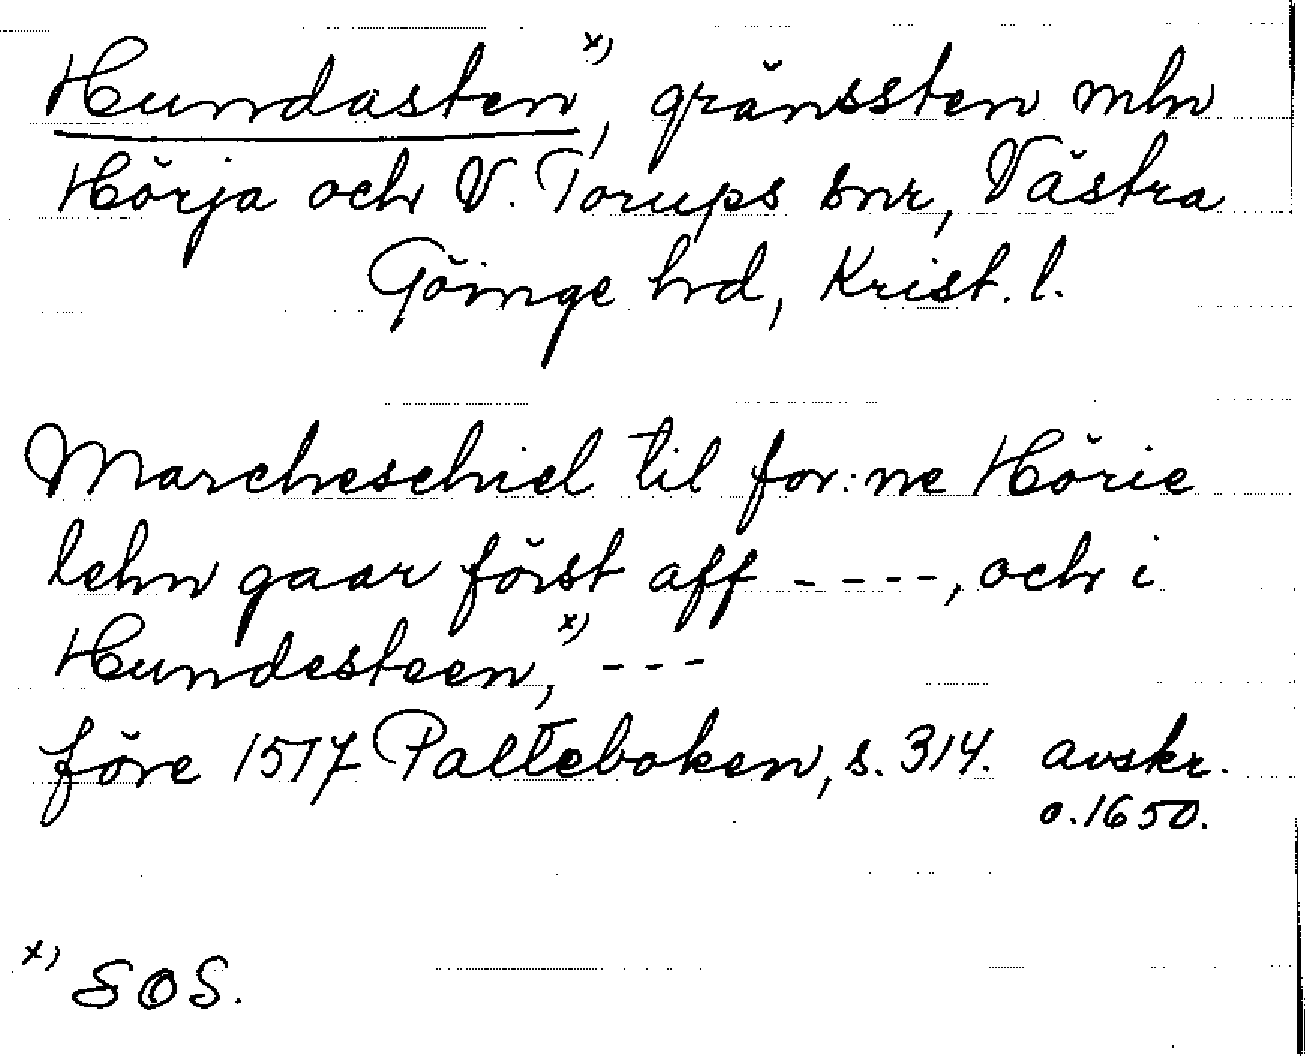 Hundasten x), gränssten mln
Hörja och V. Torups snr, Västra
Göinge hrd, Krist. l.
Marcheschiel til for:ne Hörie
lehn gaar först aff ----, och i
Hundesteen, x) ---
före 1517 Palteboken, s. 314. avskr.
o. 1650.
x) SOS.